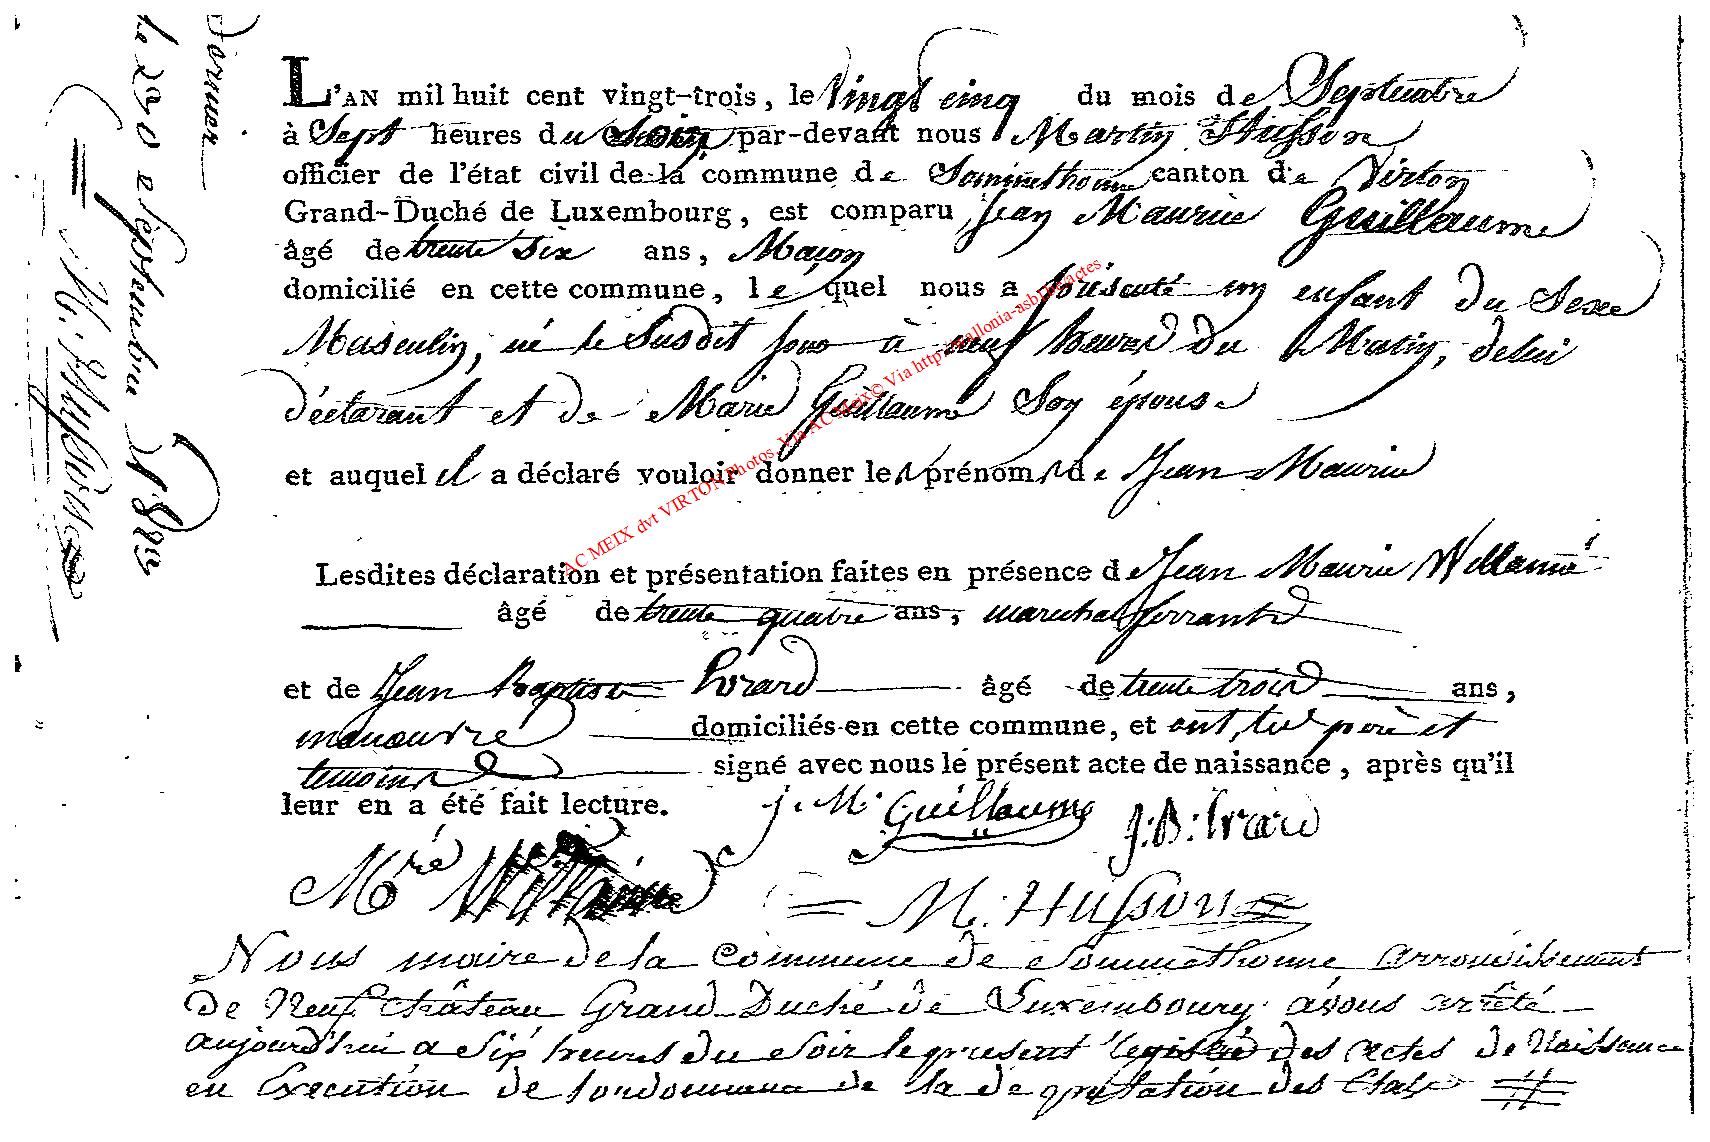 Dernier
le 250 Septembre 1823
M. Husson
L'AN mil huit cent vingt-trois, le Vingt cinq du mois de Septembre
à Sept heures du Soir, par-devant nous Martin Husson
officier de l'état civil de la commune de Sommethonne canton de Virton
Grand-Duché de Luxembourg, est comparu Jean Maurice Guillaume
âgé de trente Six ans, Maçon
domicilié en cette commune, lequel nous a présenté un enfant du Sexe
Masculin, né le Susdit jour à neuf heures du Matin, de lui
déclarant et de Marie Guillaume Son épouse
et auquel il a déclaré vouloir donner les prénoms de Jean Maurice
Lesdites déclaration et présentation faites en présence de Jean Maurice Willamé
âgé de trente quatre ans, marechal ferrant
et de Jean Baptiste Evrard âgé de trente trois ans,
manœuvre domiciliés en cette commune, et ont, les père et
témoins signé avec nous le présent acte de naissance, après qu'il
leur en a été fait lecture. j. M. Guillaume J:B: Evrard
Mre Willame = M: Husson
Nous maire de la Commune de Sommethonne arrondissement
de Neufchâteau Grand Duché de Luxembourg avons arrêté
aujourd'hui a Six heures du Soir le présent registre des actes de Naissance
en Execution de l'ordonnance de la députation des Etats
AC MEIX dvt VIRTON Photos Via AC Meix© Via http://wallonia-asbl.be/actes